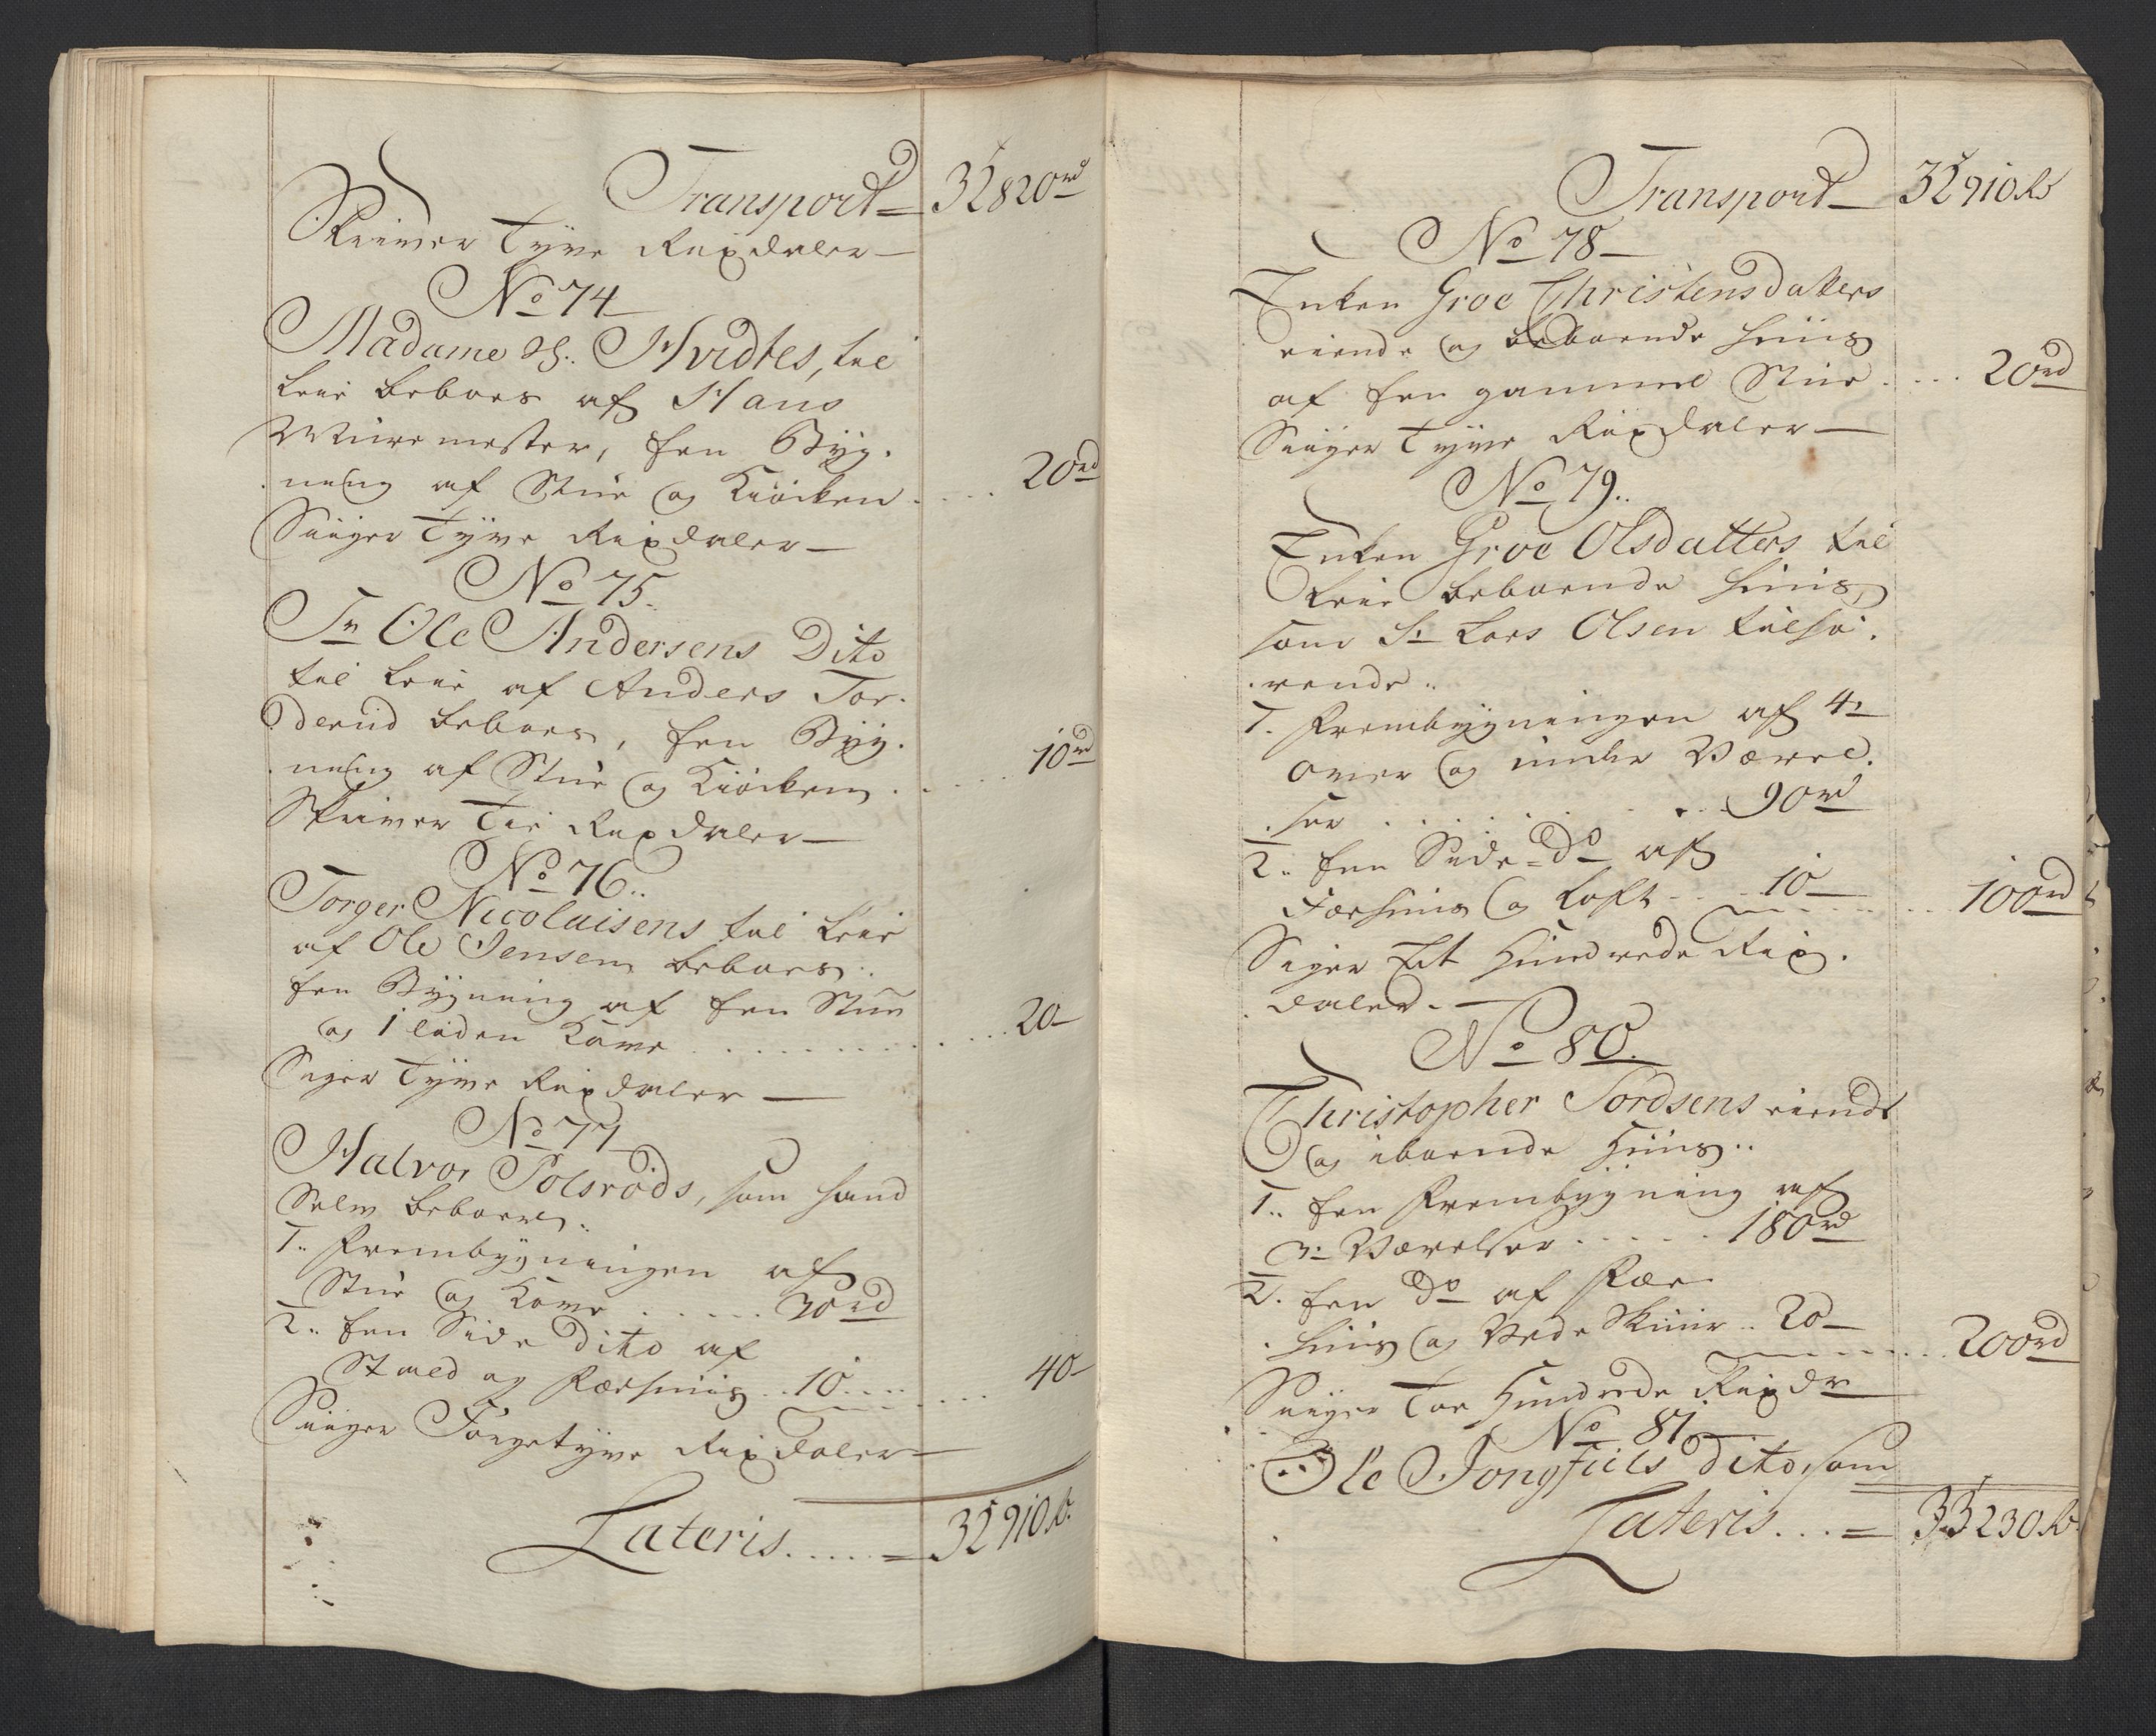 Transport = 32820rd
Skriver Tyve Rixdaler —
No 74
Madame Hvidtes, til
Leie beboes af Hans
Muremester, Een Byg-
ning af Stue og Kiöcken . . . . 20rd
Siiger Tyve Rixdaler —
No 75.
Sr Ole Andersens Dito
til Leie af Anders Tor-
derud beboes, Een Byg-
ning af Stue og Kiöcken . . . . 10rd
Skriver Tie Rixdaler —
No 76..
Torger Nicolaisens til Leie
af Ole Jensen beboes..
Een Bygning af Een Stue
og 1 liden Kove . . . . . . . . 20—
Siger Tyve Rixdaler —
No 77
Halvor Solsröds, som hand
Selv beboer.
1.. Frembygningen af
Stue og Kove . . . . . 30rd
2.. Een Side Dito af
Stald og Færhuus . . 10 . . . . . . . 40—
Siiger Förgetyve Rixdaler —
Lateris. . . . . = 32910rd.
Transport — 32910rd
No 78 —
Enken Groe Christensdatters
eiende og beboende Huus
af Een gammel Stue . . . . 20rd
Siiger Tyve Rixdaler —
No 79..
Enken Groe Olsdatters til
Leie beboende Huus,
som Sr Lars Olsen tilhö-
rende..
1. Frembygningen af 4re
over og under Værel-
ser . . . . . . . . 90rd
2.. Een Side-Do af
Færhuus og Loft . . . 10 — . . . . 100rd
Siger Et Hundrede Rix-
daler. —
No 80.
Christopher Tordsens eiende
og iboende Huus..
1.. Een Frembygning af
3e Værelser . . . . . 180rd
2. Een Do af Fæe-
huus og Vede Skuur . . 20 — . . . . 200rd
Siiger Toe Hundrede Rixdr
No 81 —
Ole Jongfiels Dito, som
Lateris. . . = 33230rd.